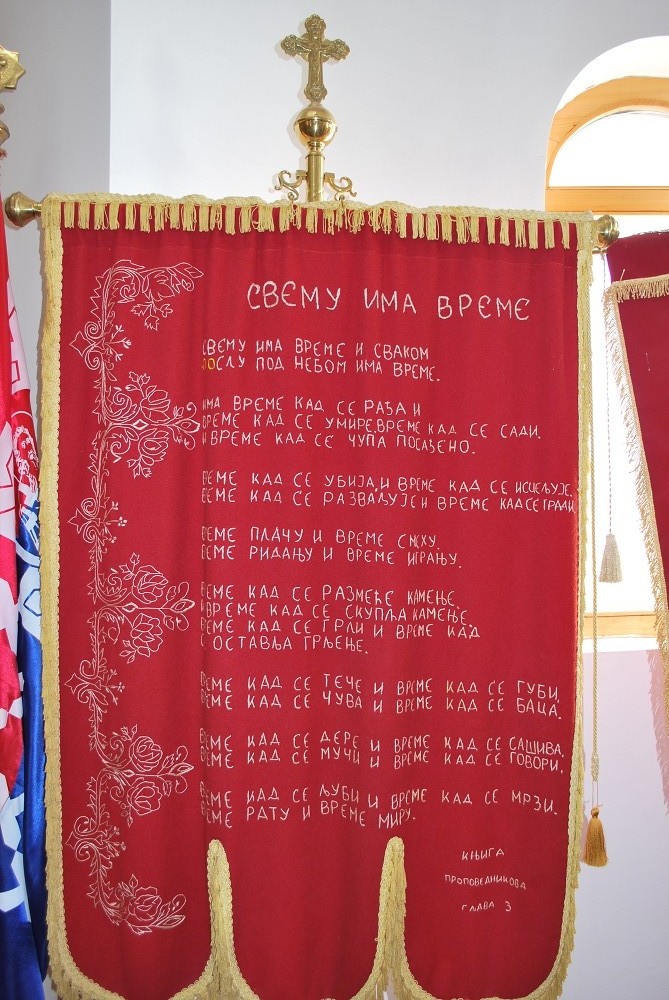 СВЕМУ ИМА ВРЕМЕ
СВЕМУ ИМА ВРЕМЕ И СВАКОМ
ПОСЛУ ПОД НЕБОМ ИМА ВРЕМЕ.
ИМА ВРЕМЕ КАД СЕ РАЂА И
ВРЕМЕ КАД СЕ УМИРЕ, ВРЕМЕ КАД СЕ САДИ.
И ВРЕМЕ КАД СЕ ЧУПА ПОСАЂЕНО.
ВРЕМЕ КАД СЕ УБИЈА, И ВРЕМЕ КАД СЕ ИСЦЕЉУЈЕ,
ВРЕМЕ КАД СЕ РАЗВАЉУЈЕ И ВРЕМЕ КАД СЕ ГРАДИ
ВРЕМЕ ПЛАЧУ И ВРЕМЕ СМЕХУ.
ВРЕМЕ РИДАЊУ И ВРЕМЕ ИГРАЊУ.
ВРЕМЕ КАД СЕ РАЗМЕЋЕ КАМЕЊЕ.
И ВРЕМЕ КАД СЕ СКУПЉА КАМЕЊЕ.
ВРЕМЕ КАД СЕ ГРЛИ И ВРЕМЕ КАД
ОСТАВЉА ГРЉЕЊЕ.
ВРЕМЕ КАД СЕ ТЕЧЕ И ВРЕМЕ КАД СЕ ГУБИ,
ВРЕМЕ КАД СЕ ЧУВА И ВРЕМЕ КАД СЕ БАЦА.
ВРЕМЕ КАД СЕ ДЕРЕ И ВРЕМЕ КАД СЕ САШИВА,
ВРЕМЕ КАД СЕ МУЧИ И ВРЕМЕ КАД СЕ ГОВОРИ.
ВРЕМЕ КАД СЕ ЉУБИ И ВРЕМЕ КАД СЕ МРЗИ.
ВРЕМЕ РАТУ И ВРЕМЕ МИРУ.
КЊИГА
ПРОПОВЕДНИКОВА
ГЛАВА 3